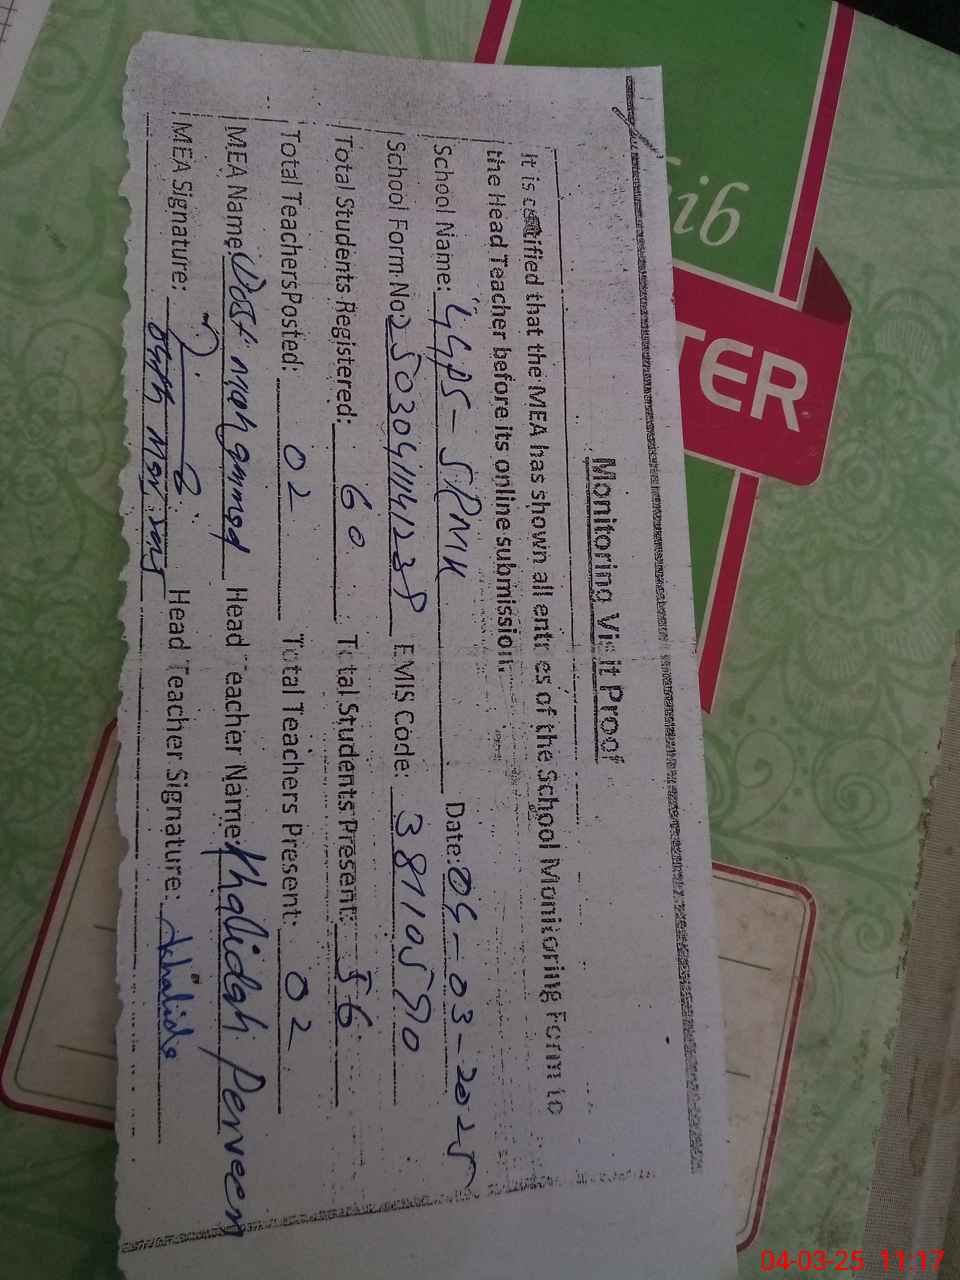 Monitoring Visit Proof
It is certified that the MEA has shown all entries of the School Monitoring Form to
the Head Teacher before its online submission.
School Name: GGPS - SRMK Date: 04-03-2025
School Form No: EMIS Code: 38110590
Total Students Registered: 60 Total Students Present: 56
Total Teachers Posted: 02 Total Teachers Present: 02
MEA Name: Dost muhammed Head Teacher Name: Khalidah Perveen
MEA Signature: Head Teacher Signature: Khalida
TER
04-03-25 11:17